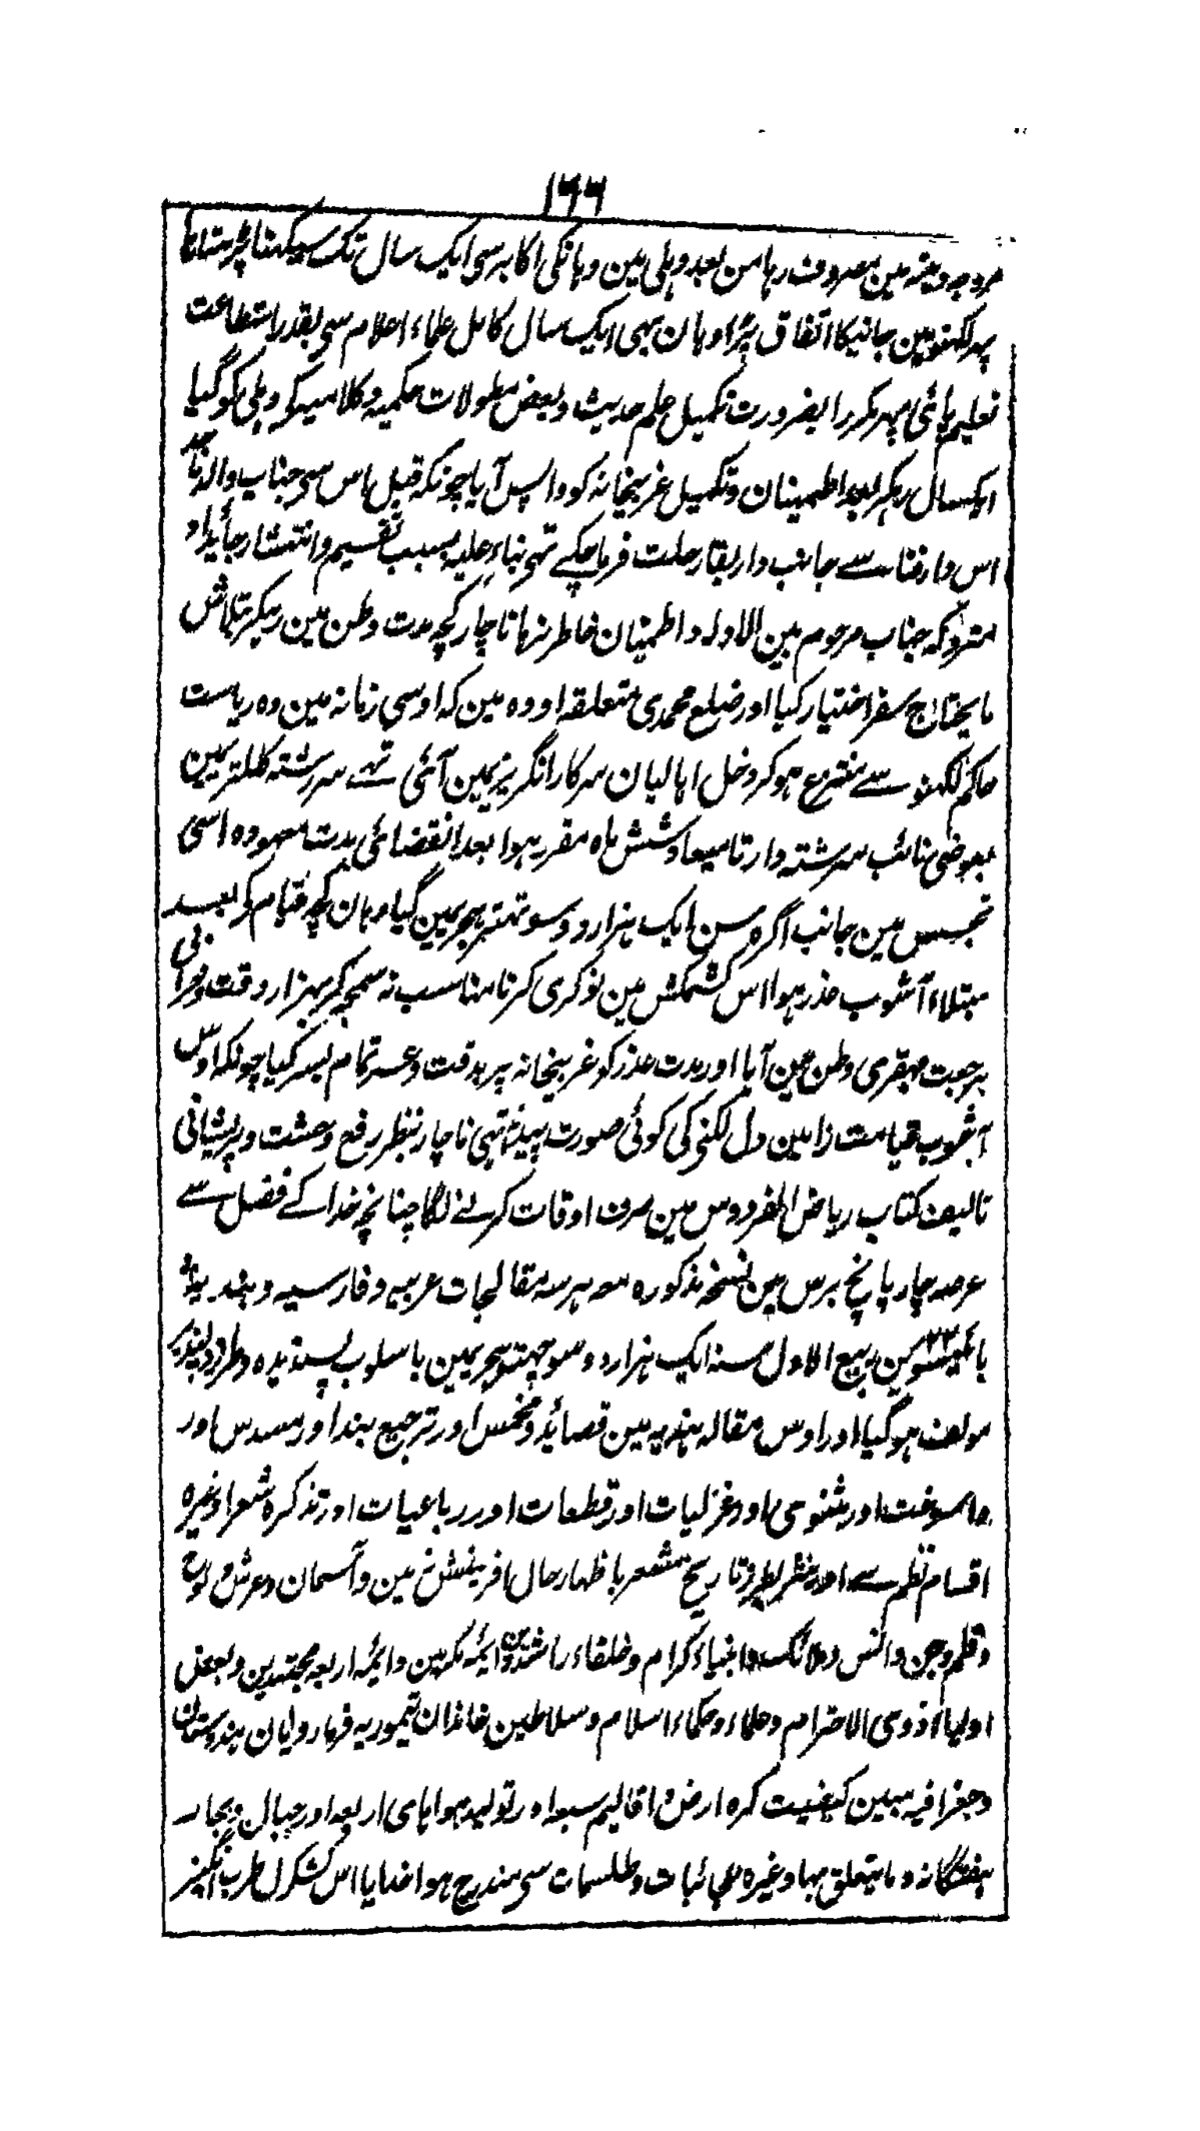 ۱۶۶
مروجہ دینیہ مین مصروف رہا من بعد دہلی مین وہانکی اکابر سی ایک سال تک سیکہتا پڑہتا رہا
پہر لکہنو مین جانیکا اتفاق پڑا وہان بہی ایک سال کامل علماء اعلام سی بقدر استطاعت
تعلیم پائی پہر مکرر ا بضرورت تکمیل علم حدیث و بعض مطولات حکمیہ و کلامیہ کو دہلی کو گیا
ایکسال رہکر بعد اطمینان و تکمیل غریبخانہ کو واپس آیا چونکہ قبل اس سی جناب والد ماجد
اس دار فنا سے جانب دار بقا رحلت فرما چکے تہی بناء علیہ بسبب تقسیم و انتشار جائداد
متروکہ جناب مرحوم بین الاولاد اطمینان خاطر نرہا ناچار کچہ مدت وطن مین رہکر بتلاش
مایحتاج سفر اختیار کیا اور ضلع محمدی متعلقہ اودہ مین کہ اوسی زمانہ مین وہ ریاست
حاکم لکہنو سے منتزع ہوکر دخل اہالیان سرکار انگریز یمین آئی تہے سررشتہ کلکٹر یمین
بعوضی نائب سررشتہ دار تا میعاد شش ماہ مقرر ہوا بعد انقضائی مدت معہودہ اسی
تجسس مین جانب اگرہ سن ایک ہزار دو سو تہتر ہجر یمین گیا وہان کچہ قیام کر بعد
مبتلاء آشوب غدر ہوا اس کشمکش مین نوکری کرنا مناسب نہ سمجہ کر بہزار دقت و خرابی
برجعت قہقری وطن مین آیا اور مدت غدر کو غریبخانہ پر بدقت و عسر تمام بسر کیا چونکہ اوس
آشوب قیامت زا مین دل لگنی کی کوئی صورت پیدا نتہی ناچار بنظر رفع وحشت و پریشانی
تالیف کتاب ریاض الفردوس مین صرف اوقات کرنے لگا چنانچہ خدا کے فضل سے
عرصہ چار پانچ برس مین نسخہ مذکورہ معہ ہرسہ مقالجات عربیہ و فارسیہ و ہندیہ
بائیسوین ۲۲ ربیع الاول سنہ ایک ہزار دو سو ہجر یمین با سلوب پسندیدہ و طرز دلپذیر
مولف ہو گیا اور اوس مقالہ ہندیہ مین قصائد و مخمس اور ترجیع بند اور مسدس اور
واسوخت اور مثنوی اور غزلیات اور قطعات اور رباعیات اور تذکرہ شعرا وغیرہ
اقسام نظم سے اور نثر بطرز تاریخ مشعر باظہار حال افرینش زمین و آسمان و عرش و لوح
و قلم و جن و انس و ملائک و انبیاء کرام و خلفاء راشدین و ایمہ مکرمین و ایمہ اربعہ مجتہدین و بعض
اولیاء ذوی الاحترام و علماء و حکماء اسلام و سلاطین خاندان تیموریہ فرمانروایان ہندوستان
و جغرافیہ مبین کیفیت کرہ ارض و اقالیم سبعہ اور تولید ہواہای اربعہ اور جبال و بحار
ہفتگانہ و ما یتعلق بہا وغیرہ عجائبات و طلسمات سی مندرج ہوا خدایا اس گلشن طرب انگیز